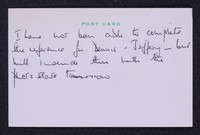 POST CARD
I have not been able to complete
this reference for Dennis - Jeffery - but
will include this with the
photostats tomorrow